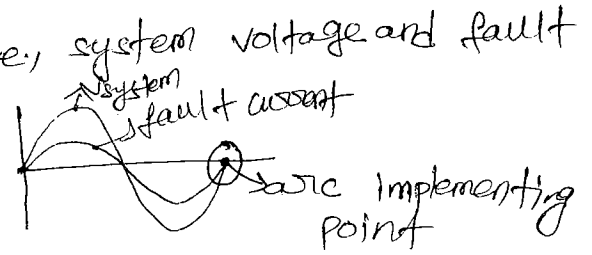 e., system voltage and fault
Vsystem
fault current
arc implementing
point